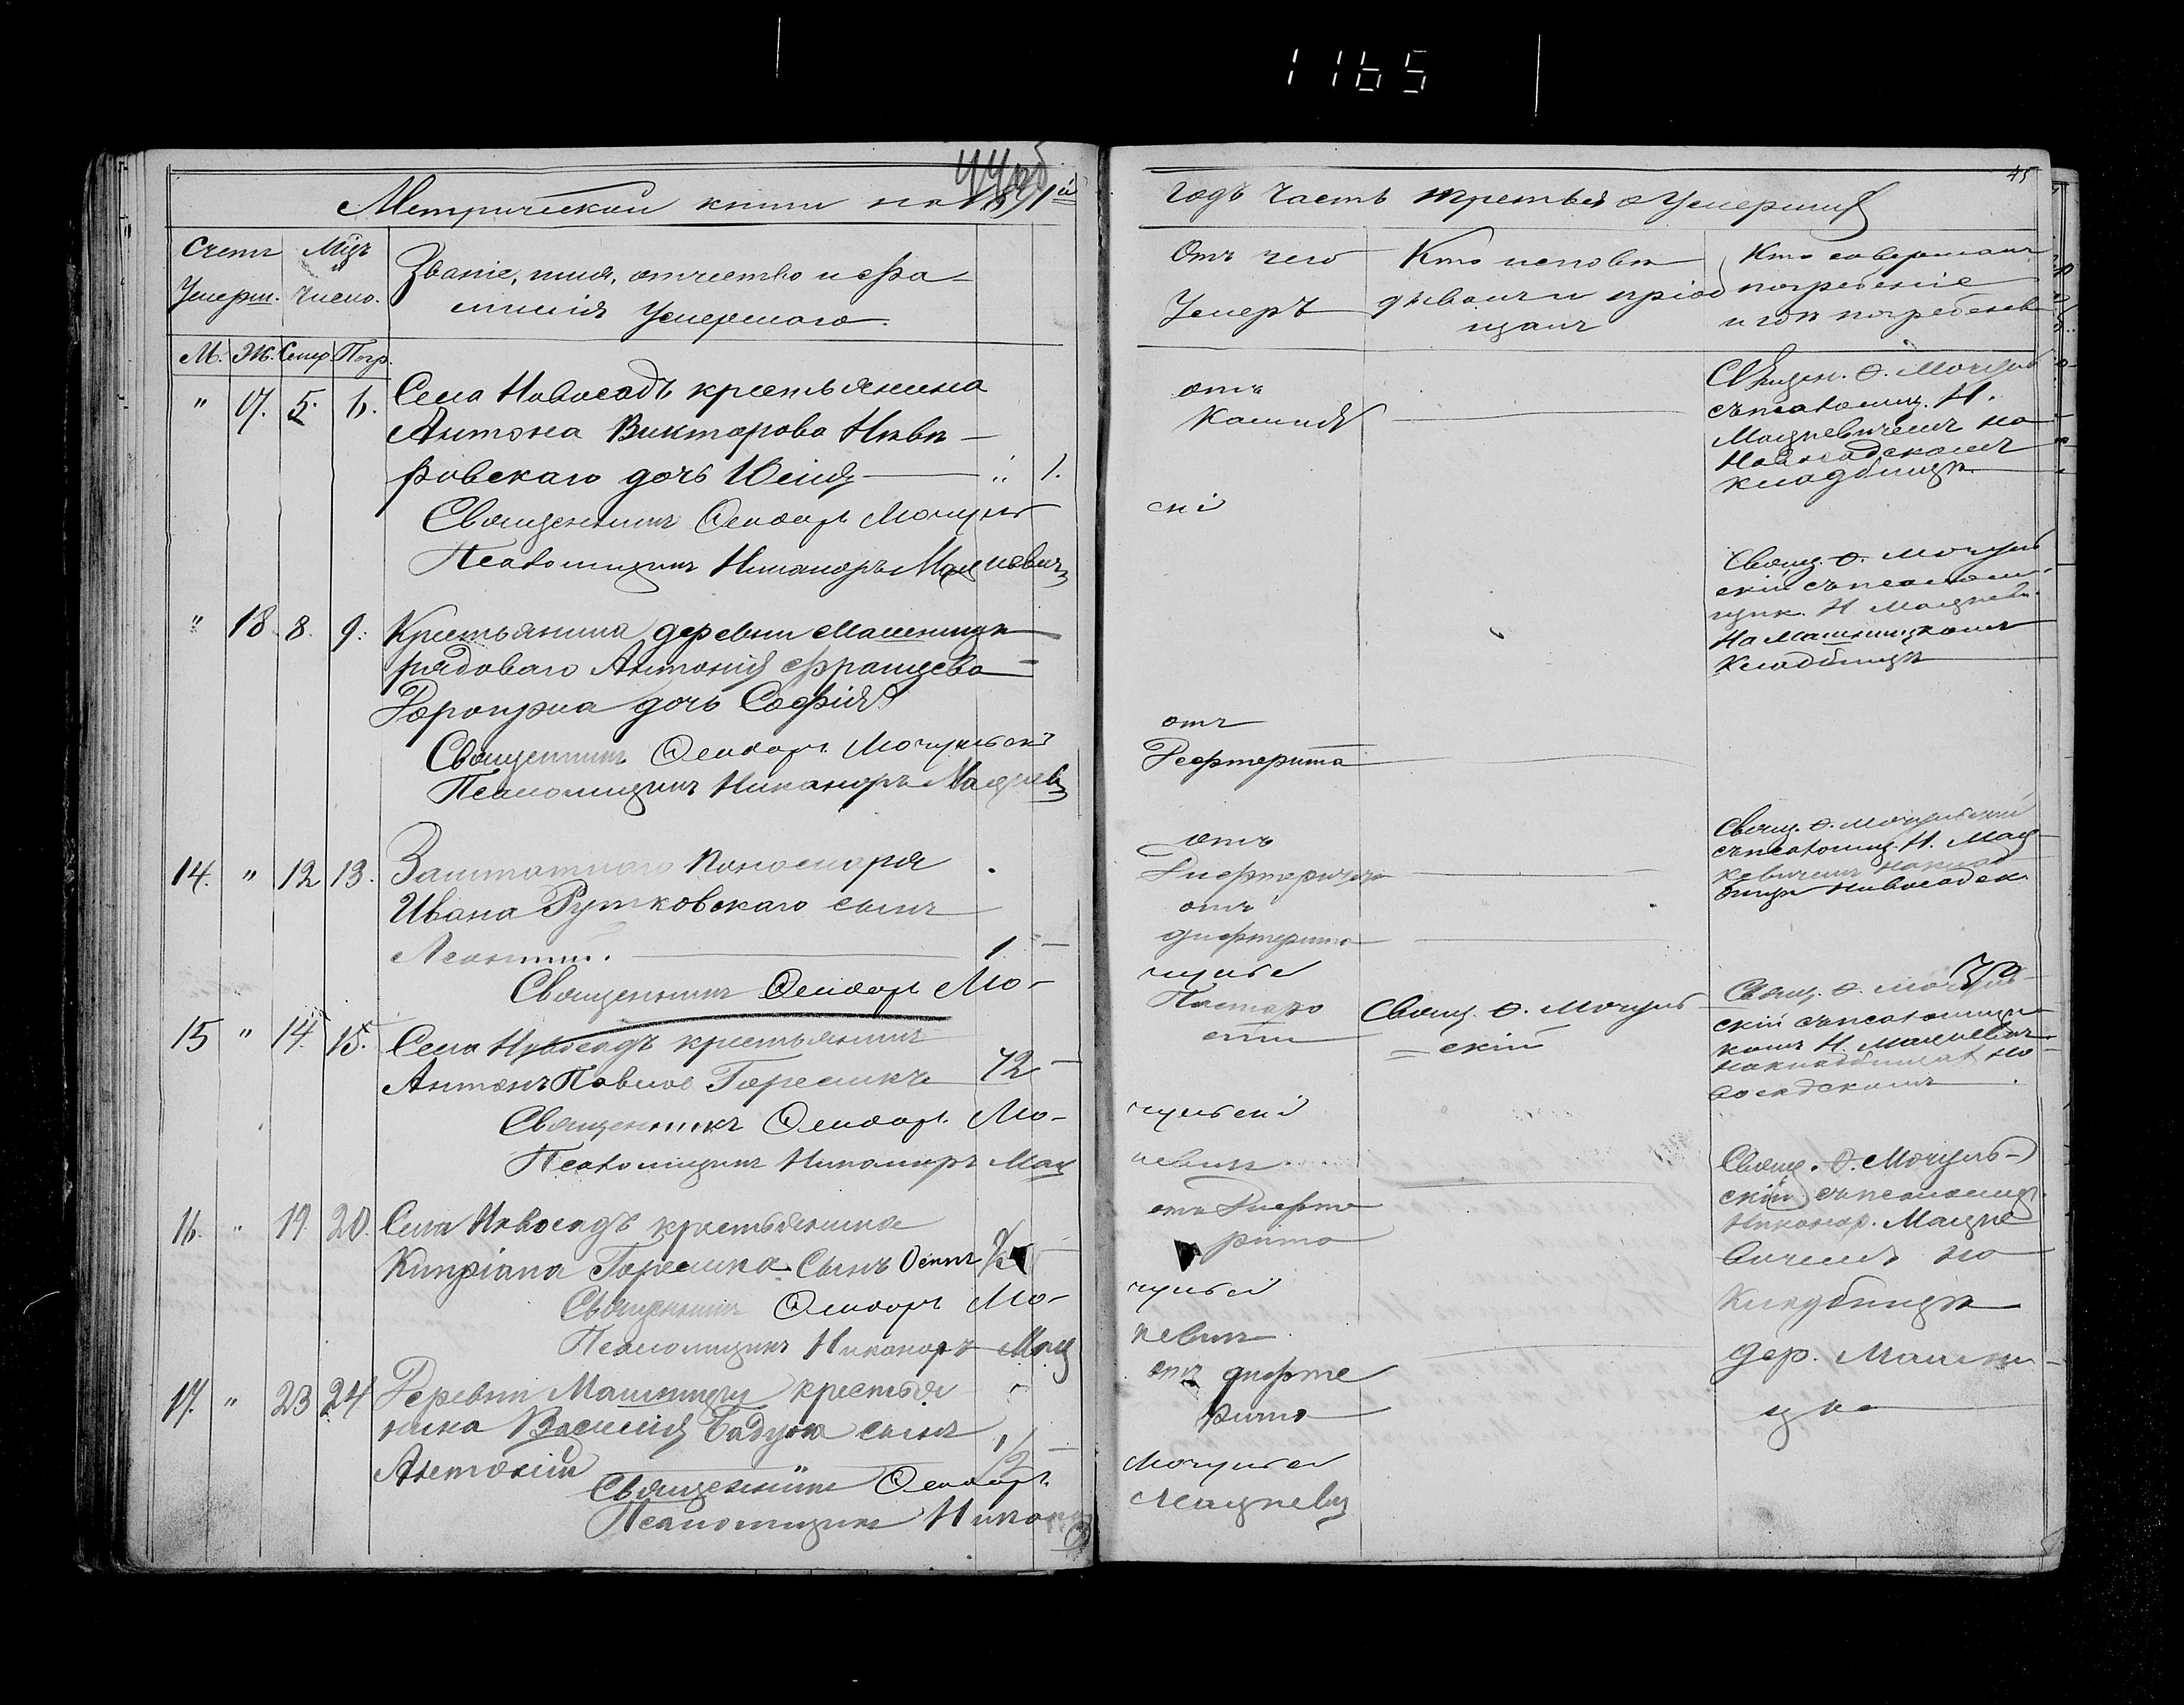 1165
44 об
45
Метрической книги на 1891й
годъ часть третья о умершихъ
Счетъ Умерш.
Мцъ и число.
Званіе, имя, отчество и фа-
милія Умершаго.
Отъ чего
Умеръ
Кто исповѣ
дывалъ и пріоб
щалъ
Кто совершалъ
погребеніе
и гдѣ погребены
М. Ж. Смер Погр.
" 17. 5. 6. Села Новосадъ крестьянина
Антона Викторова
ровскаго дочь Юлія " 1.
Священникъ Ѳеодоръ Мочуль
скій
Псаломщикъ Никаноръ Мацкевичъ
отъ
Кашля
Священ. Ѳ. Мочуль
съ псаломщ. Н.
Мацкевичемъ на
Новосадскомъ
кладбищѣ
" 18. 8. 9. Крестьянина деревни Машкинцы
рядоваго Антонія Францева
дочь Софія
Священникъ Ѳеодоръ Мочульскі
Псаломщикъ Никаноръ Мацкев
отъ
Дефтерита
Свящ. Ѳ. Мочуль
скій съ псалом
щик. Н. Мацкеви.
На
Кладбищѣ
14. " 12 13. Заштатнаго Пономаря
Ивана Рутковскаго сынъ
Леонтій. 1. -
Священникъ Ѳеодоръ Мо-
чульскі
отъ
отъ
дифтерита
Свящ. Ѳ. Мочульскій
съ псаломщ. Н. Мац
кевичемъ на клад
бищѣ Новосадск.
15 " 14. 15. Села Новосадъ крестьянинъ
Антонъ Павлов Гореликъ 72 -
Священникъ Ѳеодоръ Мо-
чульскій
Псаломщикъ Никаноръ Мац
кевичъ
По старо
сти
Свящ. Ѳ. Мочуль
скій
Свящ. Ѳ. Мочуль
скій съ псаломщи
комъ Н. Мацкевич.
на кладбищѣ Но
восадскомъ
16. " 19. 20. Села Новосадъ крестьянина
Кипріана Горелика сынъ Осипъ
Священникъ Ѳеодоръ Мо-
чульскій
Псаломщикъ Никаноръ Мац
кевичъ
отъ Дифте
рита
Свящ. Ѳ. Мочуль-
скій съ псаломщ.
Никанор. Мацке
вичемъ на
Кладбищѣ
дер. Машкин
цка
17. " 23 24 Деревни Машкинцы крестья
нина Василія Бадуна сынъ
Антоній 1/2 -
Священникъ Ѳеодоръ
Мочульскі
Псаломщикъ Никанор
Мацкевич
отъ дифте
рита